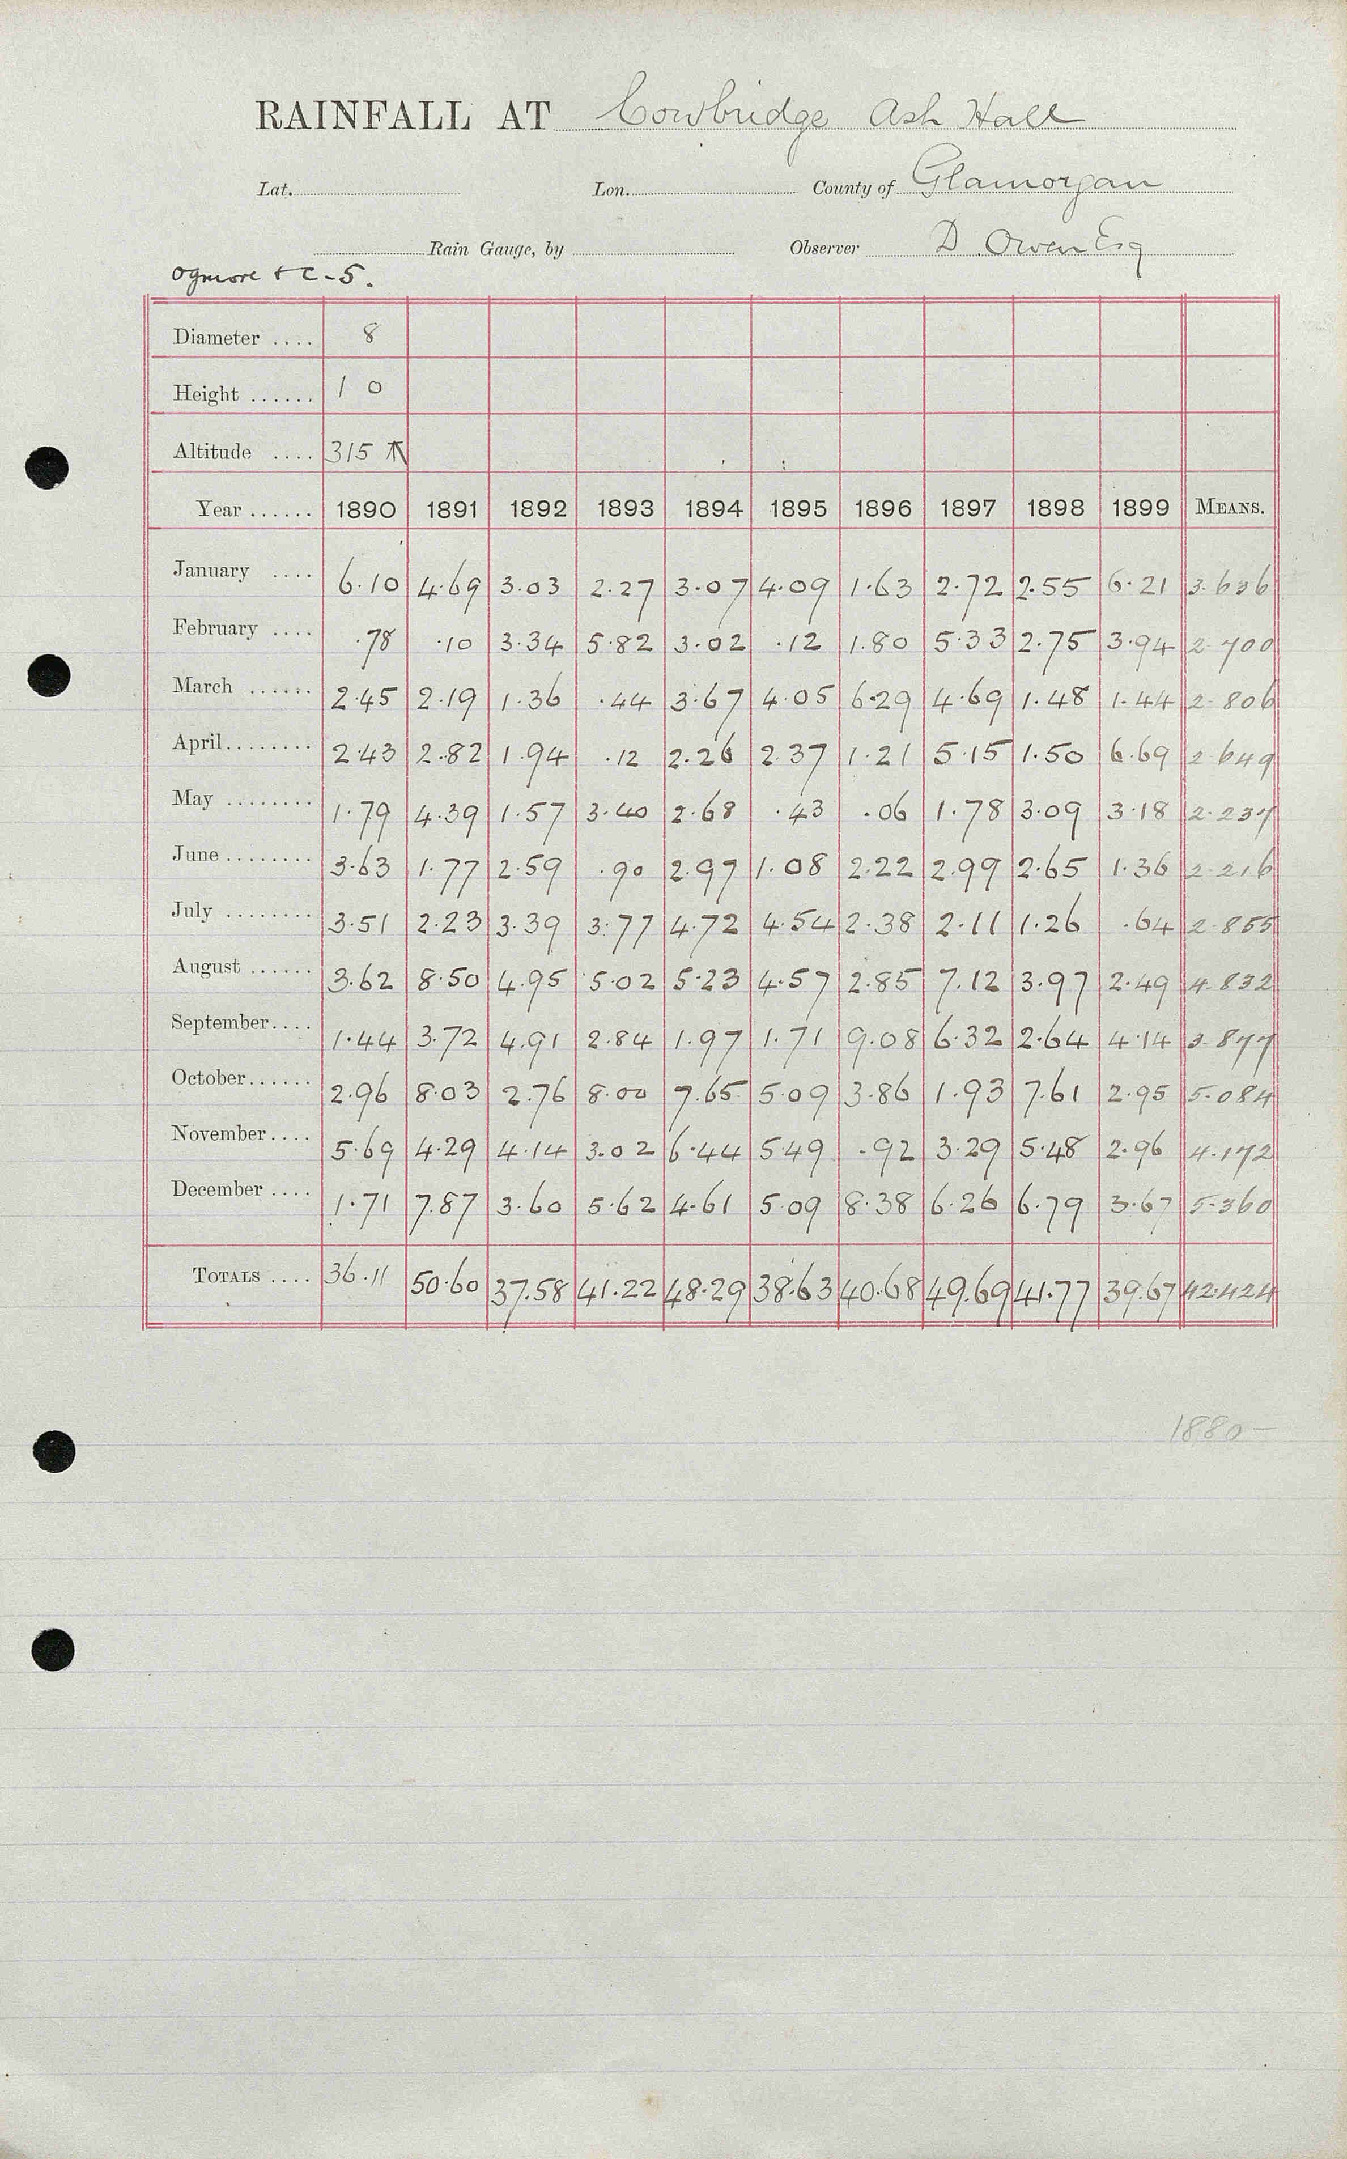 RAINFALL AT Cowbridge Ash Hall
Lat. Lon. County of Glamorgan
Rain Gauge, by Observer D Owen Esq
Ogmore & C-5.
Diameter .... 8
Height ...... 1 0
Altitude .... 315 T
Year ...... 1890 1891 1892 1893 1894 1895 1896 1897 1898 1899 MEANS.
January .... 6.10 4.69 3.03 2.27 3.07 4.09 1.63 2.72 2.55 6.21 3.636
February .... .78 .10 3.34 5.82 3.02 .12 1.80 5.33 2.75 3.94 2.700
March ...... 2.45 2.19 1.36 .44 3.67 4.05 6.29 4.69 1.48 1.44 2.806
April........ 2.43 2.82 1.94 .12 2.26 2.37 1.21 5.15 1.50 6.69 2.649
May ........ 1.79 4.39 1.57 3.40 2.68 .43 .06 1.78 3.09 3.18 2.237
June ........ 3.63 1.77 2.59 .90 2.97 1.08 2.22 2.99 2.65 1.36 2.216
July ........ 3.51 2.23 3.39 3.77 4.72 4.54 2.38 2.11 1.26 .64 2.855
August ...... 3.62 8.50 4.95 5.02 5.23 4.57 2.85 7.12 3.97 2.49 4.832
September.... 1.44 3.72 4.91 2.84 1.97 1.71 9.08 6.32 2.64 4.14 3.877
October...... 2.96 8.03 2.76 8.00 7.65 5.09 3.86 1.93 7.61 2.95 5.084
November.... 5.69 4.29 4.14 3.02 6.44 5.49 .92 3.29 5.48 2.96 4.172
December .... 1.71 7.87 3.60 5.62 4.61 5.09 8.38 6.26 6.79 3.67 5.360
TOTALS .... 36.11 50.60 37.58 41.22 48.29 38.63 40.68 49.69 41.77 39.67 42.424
1880-